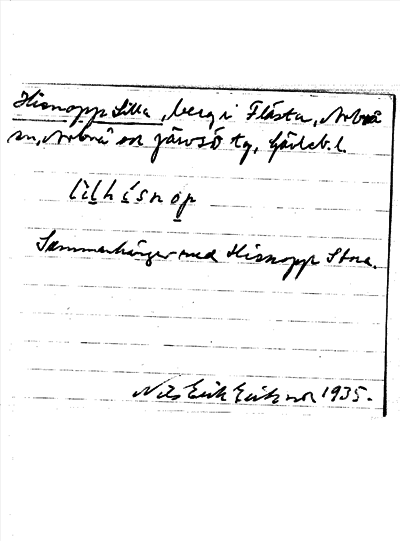 Hisnopp Lilla, berg i Flästa, Arbrå
sn, Arbrå o Järvsö tg, Gävleb. l.
lìlh ísnop
Sammanhänger med Hisnopp Stora.
Nils Erik Eriksson 1935.